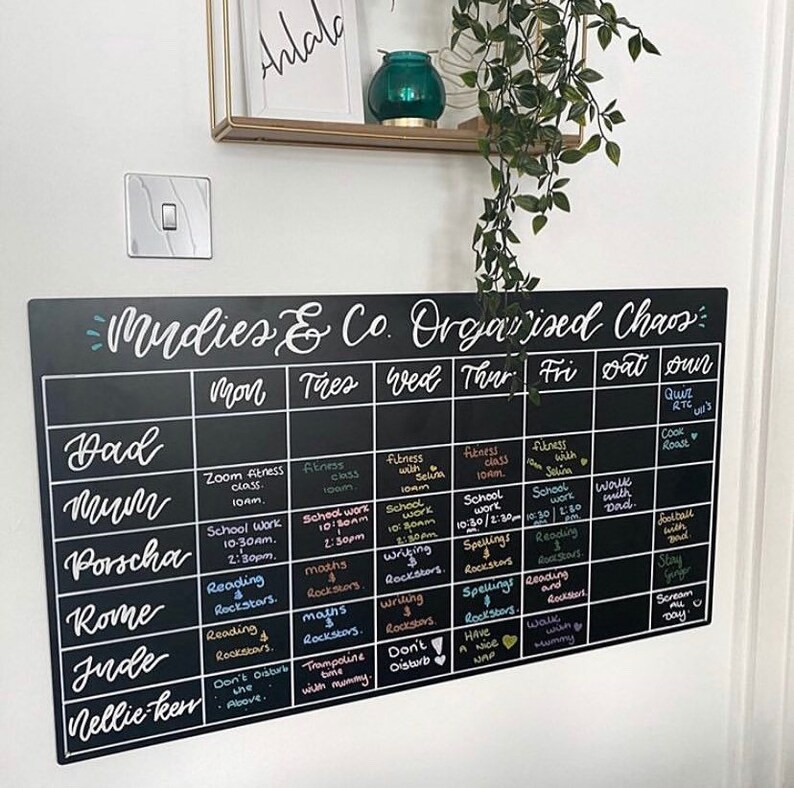 Ahlala
Mudies & Co. Organised Chaos
Mon Tues Wed Thur Fri Sat Sun
Dad
Quiz
RTC U11's
Mum
Zoom fitness
class.
10AM.
fitness
class
10am.
fitness
with
Selina
10AM
fitness
class
10AM.
fitness
10am with
Selina
Cook
Roast
Porscha
School work
10:30AM.
&
2:30pm.
School work
10:30AM
&
2:30pm
School
work
10:30AM
2:30pm
School
work
10:30 / 2:30pm
am
School
work
10:30 / 2:30
am pm.
Walk
with
Dad.
Rome
Reading
&
Rockstars.
maths
&
Rockstars.
Writing
&
Rockstars.
Spellings
&
Rockstars.
Reading
&
Rockstars.
football
with
Dad.
Jude
Reading
&
Rockstars.
maths
&
Rockstars.
Writing
&
Rockstars.
Spellings
&
Rockstars.
Reading
and
Rockstars.
Stay
Ginger
Nellie-kerr
Don't Disturb
the
Above.
Trampoline
time
with mummy.
Don't !
Disturb
HAVE
A NICE
NAP
Walk
with
Mummy
Scream
All
Day.